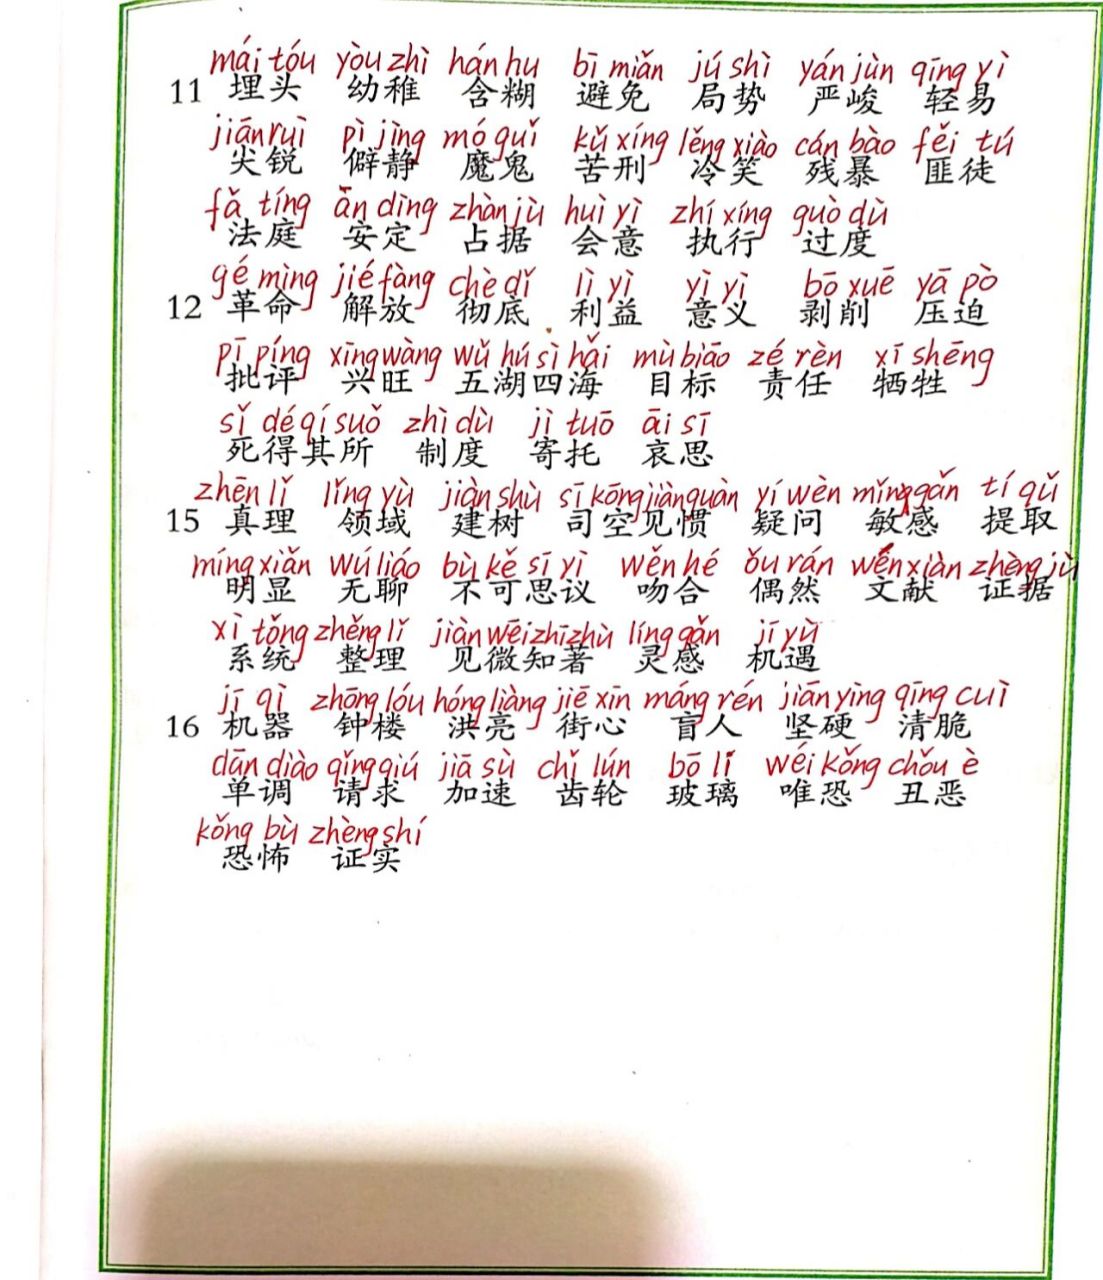 mái tóu yòu zhì hán hu bī miǎn jú shì yán jùn qīng yì
11 埋头 幼稚 含糊 避免 局势 严峻 轻易
jiān ruì pì jìng mó guǐ kǔ xíng lěng xiào cán bào fěi tú
尖锐 僻静 魔鬼 苦刑 冷笑 残暴 匪徒
fǎ tíng ān dìng zhàn jù huì yì zhí xíng guò dù
法庭 安定 占据 会意 执行 过度
gé mìng jiě fàng chè dǐ lì yì yì yì bō xuē yā pò
12 革命 解放 彻底 利益 意义 剥削 压迫
pī píng xīng wàng wǔ hú sì hǎi mù biāo zé rèn xī shēng
批评 兴旺 五湖四海 目标 责任 牺牲
sǐ dé qí suǒ zhì dù jì tuō āi sī
死得其所 制度 寄托 哀思
zhēn lǐ lǐng yù jiàn shù sī kōng jiàn guàn yí wèn mǐn gǎn tí qǔ
15 真理 领域 建树 司空见惯 疑问 敏感 提取
míng xiǎn wú liáo bù kě sī yì wěn hé ǒu rán wén xiàn zhèng jù
明显 无聊 不可思议 吻合 偶然 文献 证据
xì tǒng zhěng lǐ jiàn wēi zhī zhù líng gǎn jī yù
系统 整理 见微知著 灵感 机遇
jī qì zhōng lóu hóng liàng jiē xīn máng rén jiān yìng qīng cuì
16 机器 钟楼 洪亮 街心 盲人 坚硬 清脆
dān diào qǐng qiú jiā sù chǐ lún bō lí wéi kǒng chǒu è
单调 请求 加速 齿轮 玻璃 唯恐 丑恶
kǒng bù zhèng shí
恐怖 证实